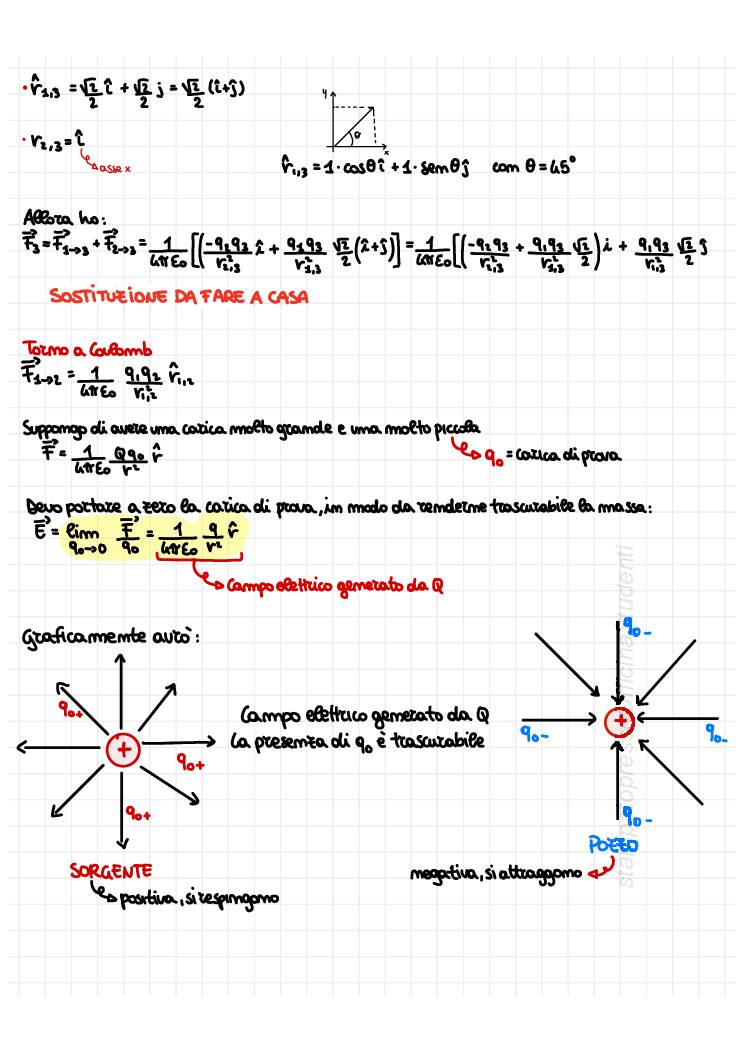 • r̂₁,₃ = √2/2 î + √2/2 j = √2/2 (î+ĵ)
• r₂,₃ = î
asse x
y
θ
x
r̂₁,₃ = 1·cosθ î + 1·senθ ĵ con θ = 45°
Allora ho:
F⃗₃ = F⃗₁→₃ + F⃗₂→₃ = 1/4πε₀ [(-q₂q₃/r²₂,₃ î + q₁q₃/r²₁,₃ √2/2 (î+ĵ)] = 1/4πε₀ [(-q₂q₃/r²₂,₃ + q₁q₃/r²₁,₃ √2/2) i + q₁q₃/r²₁,₃ √2/2 ĵ
SOSTITUZIONE DA FARE A CASA
Torno a Coulomb
F⃗₁→₂ = 1/4πε₀ q₁q₂/r²₁,₂ r̂₁,₂
Suppongo di avere una carica molto grande e una molto piccola
F⃗ = 1/4πε₀ Qq₀/r² r̂
q₀ = carica di prova
Devo portare a zero la carica di prova, in modo da renderne trascurabile la massa:
E⃗ = lim q₀→0 F⃗/q₀ = 1/4πε₀ q/r² r̂
Campo elettrico generato da Q
Graficamente avrò:
q₀+
q₀+
q₀+
+
Campo elettrico generato da Q
la presenza di q₀ è trascurabile
q₀-
q₀-
q₀-
q₀-
+
SORGENTE
positiva, si respingono
POZZO
negativa, si attraggono